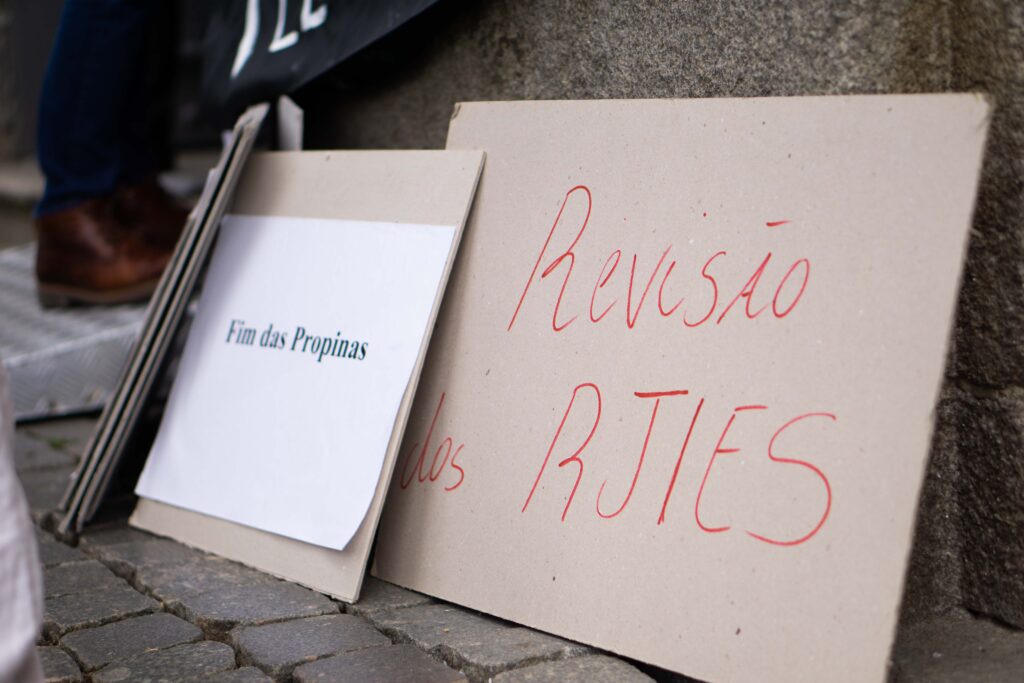 Fim das Propinas
Revisão
dos RJIES